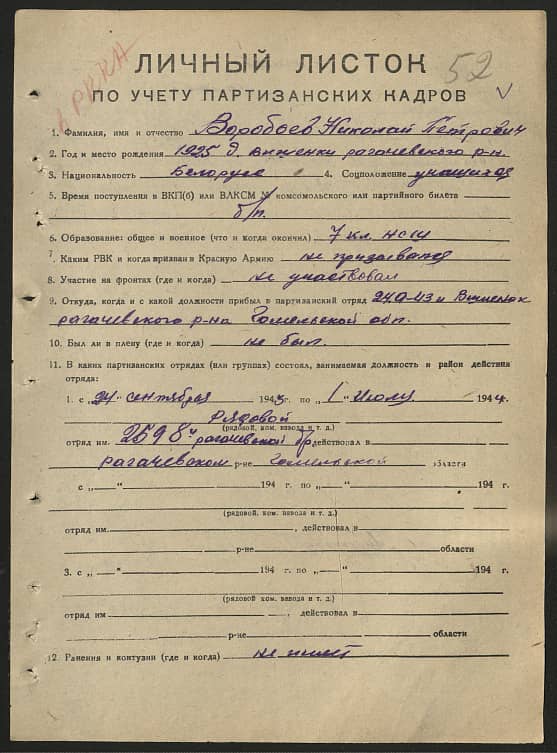 А РККА
ЛИЧНЫЙ ЛИСТОК 52
ПО УЧЕТУ ПАРТИЗАНСКИХ КАДРОВ
1. Фамилия, имя и отчество Воробьев Николай Петрович
2. Год и место рождения 1925 д. Виженки рагачевского р-н.
3. Национальность Белорус 4. Соцположение учащийся
5. Время поступления в ВКП(б) или ВЛКСМ № комсомольского или партийного билета
б/п.
6. Образование: общее и военное (что и когда окончил) 7 кл. НСШ
7. Каким РВК и когда призван в Красную Армию не призывался
8. Участие на фронтах (где и когда) не участвовал
9. Откуда, когда и с какой должности прибыл в партизанский отряд
рагачевского р-на Гомельской обл.
10. Был ли в плену (где и когда) не был.
11. В каких партизанских отрядах (или группах) состоял, занимаемая должность и район действия
отряда:
1. с „24" сентября 1943 г. по „1" Июля 1944 г.
Рядовой
(рядовой, ком. взвода и т. д.)
отряд им. 259 8й рагачевской бр действовал в
рагачевском р-не Гомельской области
с „ " 194 г. по „ " 194 г.
(рядовой, ком. взвода и т. д.)
отряд им. , действовал в
р-не области
3. с „ " 194 г. по „ " 194 г.
(рядовой ком. взвода и т. д.)
отряд им , действовал в
р-не области
12. Ранения и контузии (где и когда) не имеет